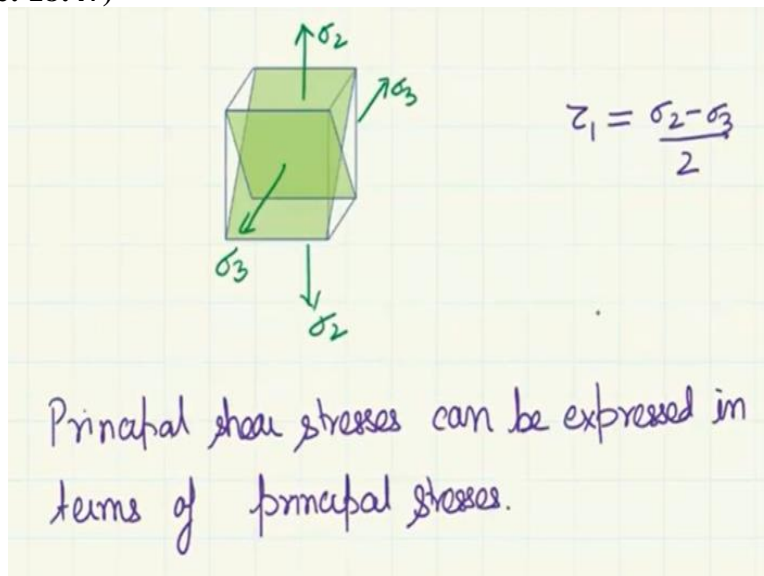 σ2
σ3
τ1 = σ2-σ3
2
σ3
σ2
Principal shear stresses can be expressed in
terms of principal stresses.